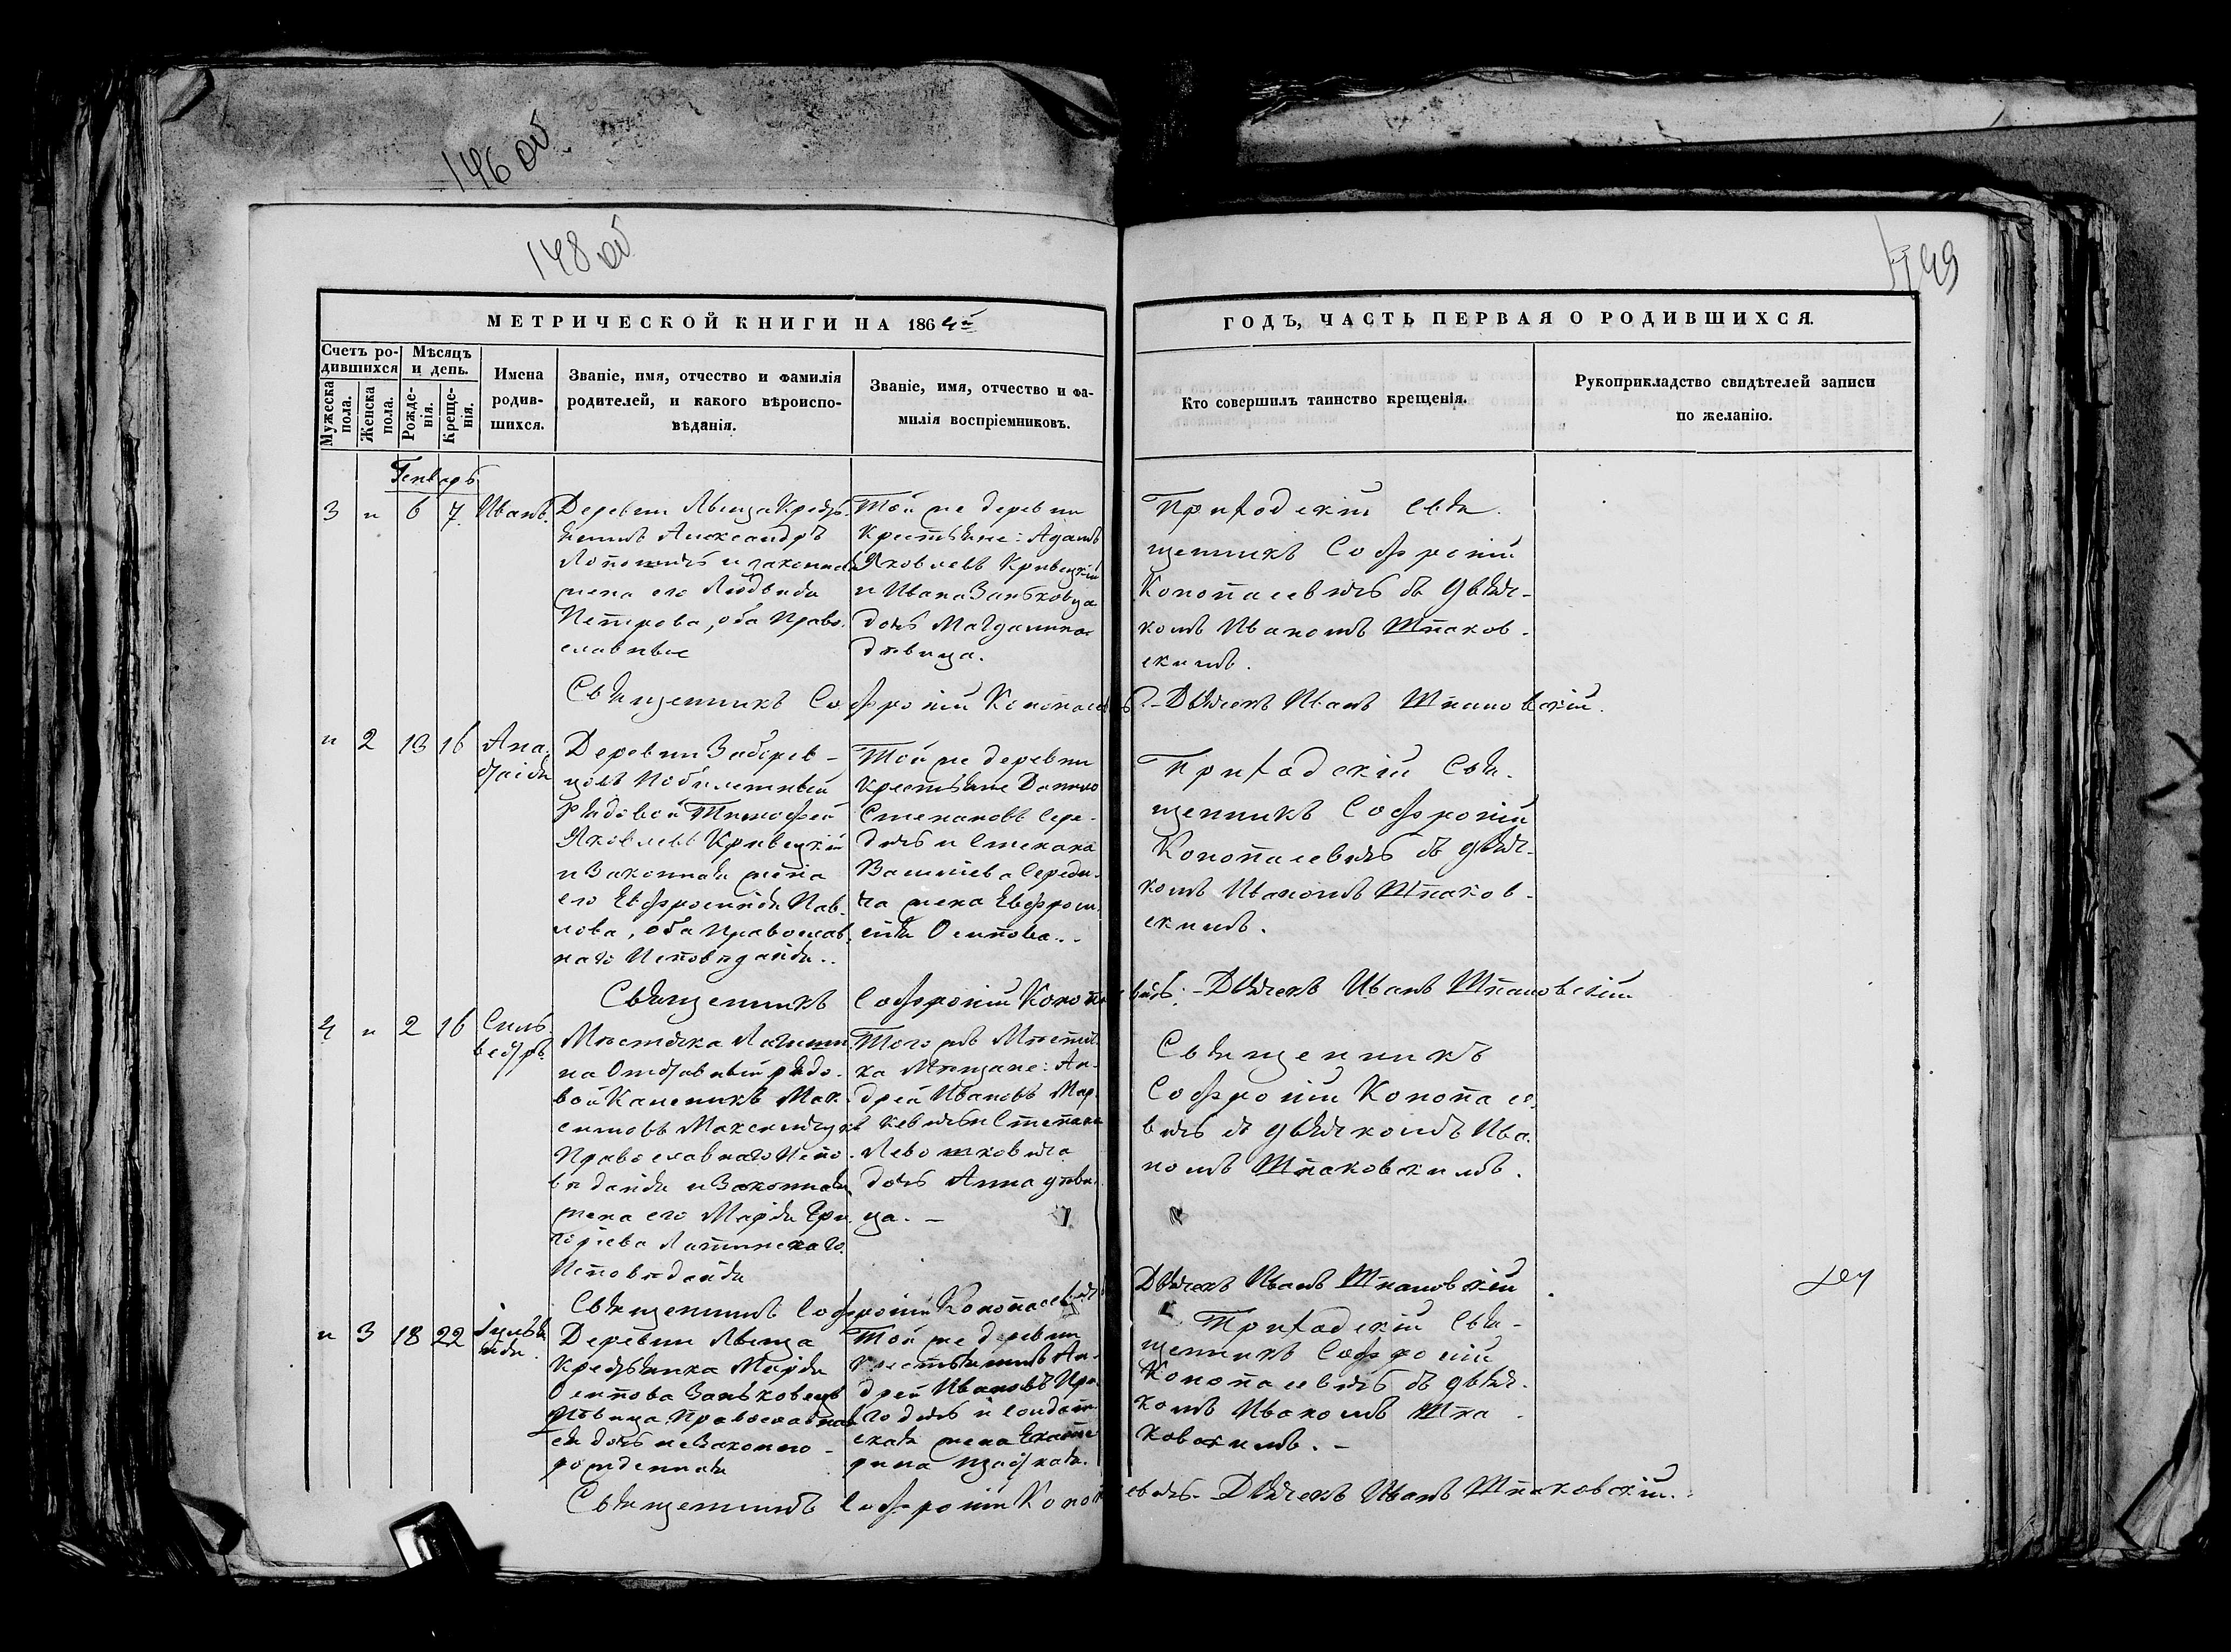 146 об
148 об
149
МЕТРИЧЕСКОЙ КНИГИ НА 1864й
ГОДЪ, ЧАСТЬ ПЕРВАЯ О РОДИВШИХСЯ.
Счетъ ро-
дившихся
Мужеска пола.
Женска пола.
Мѣсяцъ
и день.
Рожде-
нія.
Креще-
нія.
Имена
родив-
шихся.
Званіе, имя, отчество и фамилія
родителей, и какого вѣроиспо-
вѣданія.
Званіе, имя, отчество и фа-
милія воспріемниковъ.
Кто совершилъ таинство крещенія.
Рукоприкладство свидѣтелей записи
по желанію.
Генварь
3 " 6 7 Иванъ.
Деревни Крестья-
нинъ Александръ
и законная
жена его Людвида
Петрова, оба Право-
славные
Той же деревни
Крестьяне: Адамъ
Яковлевъ Кривецкій
и Ивана Заньковца
дочь Магдалина
дѣвица.
Приходскій Свя-
щенникъ Софроній
Конопасевичъ съ дьяч-
комъ Иваномъ Шпаков-
скимъ.
Священникъ Софроній Конопасевичъ - Дьячекъ Иванъ Шпаковскій.
" 2 13 16 Ана-
стасія
Деревни
рядовой Тимофей
Яковлевъ Кривецкій
и Законная жена
его Евфросинія Пав-
лова, оба Православ-
наго Исповѣданія..
Той же деревни
Крестьяне Данило
Степановъ Сере-
дичъ и Степана
Середи-
ча жена Евфроси-
нія Осипова..
Приходскій Свя-
щенникъ Софроній
Конопасевичъ съ дьяч-
комъ Иваномъ Шпаков-
скимъ.
Священникъ Софроній Конопасевичъ. - Дьячекъ Иванъ Шпаковскій
4 " 2 16 Силь-
вестръ
Мѣстечка Логиши-
на Отставный рядо-
вой Мак-
симовъ
Православнаго Испо-
вѣданія и Законная
жена его Марія Гри-
горьева Латинскаго
Исповѣданія
Того жъ Мѣстеч-
ка Мѣщане: Ан-
дрей Ивановъ Мар-
кевичъ и Степана
дочь Анна дѣви-
ца. -
Священникъ
Софроній Конопасе-
вичъ съ дьячкомъ Ива-
номъ Шпаковскимъ.
Священникъ Софроній Конопасевичъ Дьячекъ Иванъ Шпаковскій
" 3 18 22 Іулья-
нія
Деревни
Крестьянка Марія
Осипова Заньковецъ
дѣвица Православная
ея дочь незаконно-
рожденная
Той же деревни
Крестьянинъ Ан-
дрей Ивановъ
и солдат-
ская жена Екате-
рина
Приходскій Свя-
щенникъ Софроній
Конопасевичъ съ дьяч-
комъ Иваномъ Шпа-
ковскимъ. -
Священникъ Софроній Конопасевичъ. Дьячекъ Иванъ Шпаковскій.